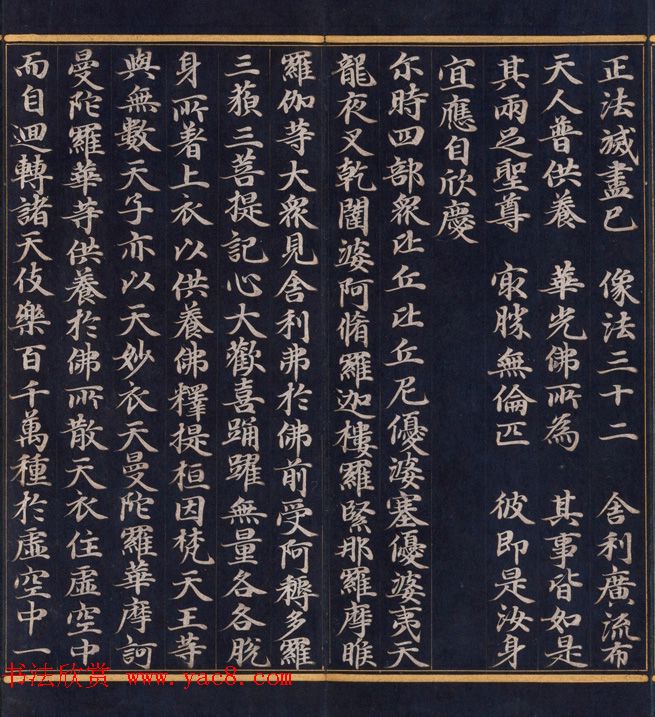 正法滅盡已　像法三十二　舍利廣流布
天人普供養　華光佛所為　其事皆如是
其兩足聖尊　㝡勝無倫匹　彼即是汝身
宜應自欣慶
尒時四部眾比丘比丘尼優婆塞優婆夷天
龍夜叉乾闥婆阿脩羅迦樓羅緊那羅摩睺
羅伽等大眾見舍利弗於佛前受阿耨多羅
三藐三菩提記心大歡喜踊躍無量各各脫
身所著上衣以供養佛釋提桓因梵天王等
與無數天子亦以天妙衣天曼陀羅華摩訶
曼陀羅華等供養於佛所散天衣住虛空中
而自迴轉諸天伎樂百千萬種於虛空中一
书法欣赏 www.yac8.com